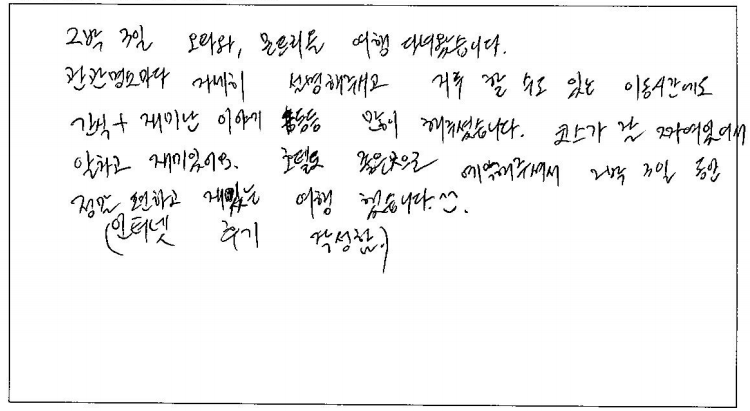 2박 3일 오타와, 몬트리올 여행 다녀왔습니다.
관광명소마다 자세히 설명해주시고 지루 할 수도 있는 이동시간에도
간식 + 재미난 이야기 등등 많이 해주셨습니다. 코스가 잘 짜여있어서
알차고 재미있어요. 호텔도 좋은곳으로 예약해주셔서 2박 3일 동안
정말 편하고 재밌는 여행 했습니다.^^.
(인터넷 후기 작성함.)